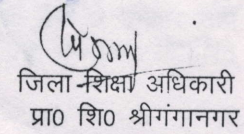 जिला शिक्षा अधिकारी
प्रा0 शि0 श्रीगंगानगर